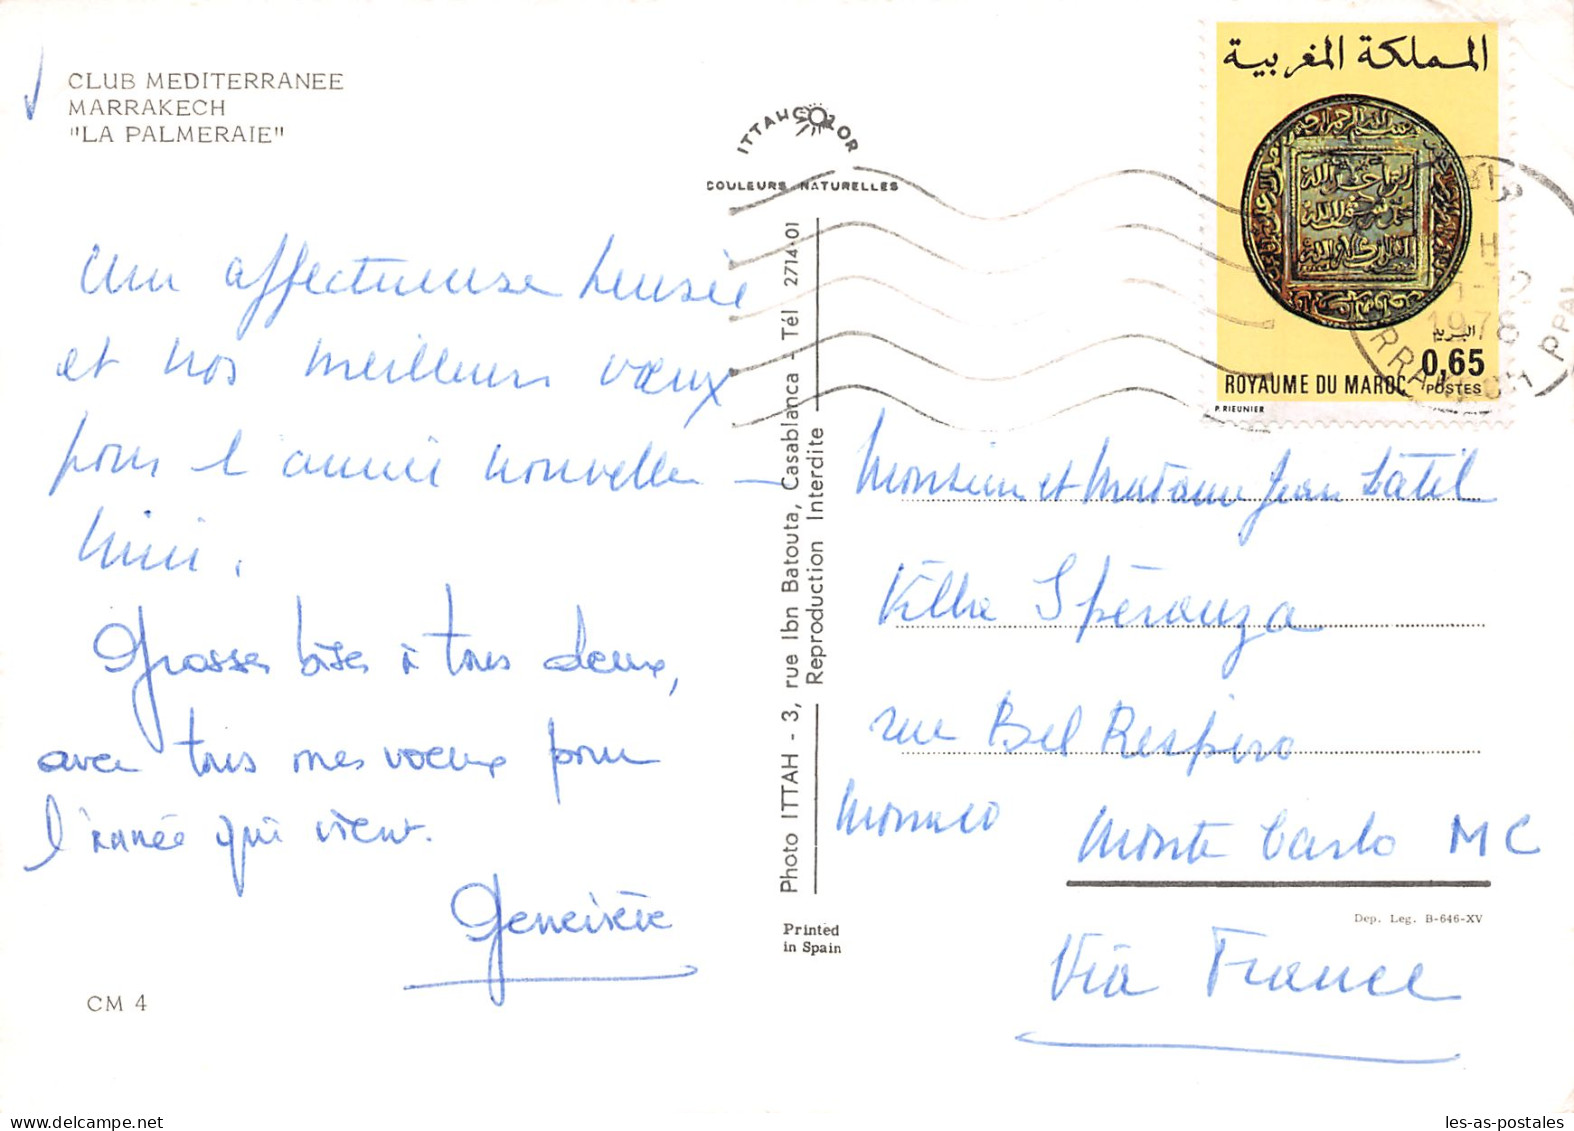 CLUB MEDITERRANEE
MARRAKECH
"LA PALMERAIE"
ITTAHCOLOR
COULEURS NATURELLES
المملكة المغربية
البريد
0,65
POSTES
ROYAUME DU MAROC
P. RIEUNIER
13
H
1978
RRAKECH PPAL
Une affectueuse pensée
et nos meilleurs vœux
pour l'année nouvelle –
Mimi.
Grosses bises à tous deux,
avec tous mes voeux pour
l'année qui vient.
Geneviève
CM 4
Photo ITTAH - 3, rue Ibn Batouta, Casablanca - Tél 2714-01
Reproduction Interdite
Printed
in Spain
Monsieur et Madame Jean Latil
Villa Spéranza
rue Bel Respiro
Monaco Monte Carlo MC
Dep. Leg. B-646-XV
Via France
les-as-postales